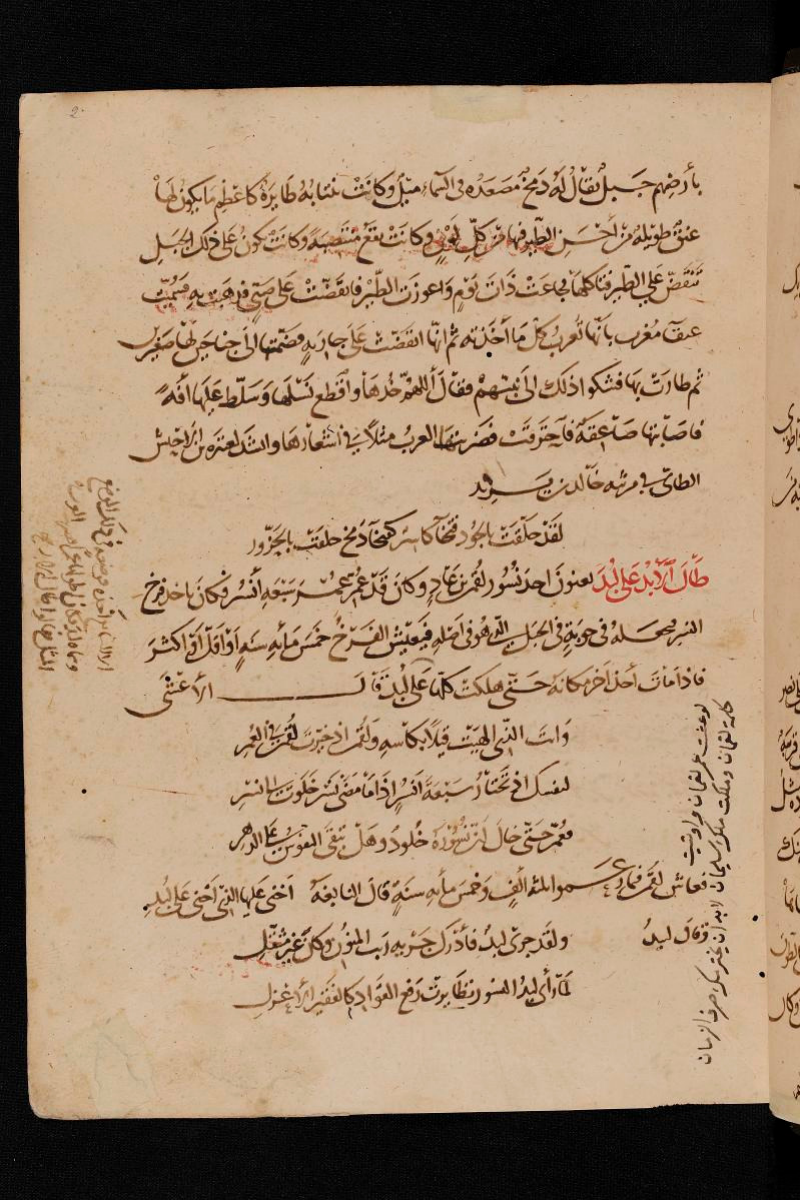 2
بأرضهم جبل يقال له دمخ مصعده في السماء ميل وكانت تنتابه طايرة كاعظم ما يكون لها
عنق طويله من أحسن الطير فيها من كل لون وكانت تقع منتصبة وكانت تكون على ذلك الجبل
تنقض على الطير فتاكلها فجاعت ذات يوم واعوزت الطير فانقضت على صبي فذهبت به فسميت
عنقا مغرب بأنها تغرب كل ما أخذته ثم انها انقضت على جارية فضمتها الى جناحين لها صغيرين
ثم طارت بها فشكوا ذلك الى نبيهم فقال اللهم خذها واقطع نسلها وسلط عليها آفة
فاصابتها صاعقة فاحترقت فضربتها العرب مثلا في اشعارها وانشد لعنترة بن الاخرس
الطائي في مرثية خالد بن يزيد
لقد حلقت بالجود فتخآ كاسر كفتخآ دمخ حلقت بالحزور
طال الأبد على لبد يعنون احد نسور لقمن بن عاد وكان قد عمر عمر سبعة أنسر فكان ياخذ فرخ
النسر فيجعله في جوبة في الجبل الذي هو في اصله فيعيش الفرخ خمس مأية سنة او اقل او اكثر
فاذا مات أخذ آخر مكانه حتى هلكت كلها على لبد قال الأعشى
وانت الذي الهيت قيلا بكاسه ولقمن اذ خيرت لقمن في العمر
لنفسك اذ تختار سبعة انسر اذا ما مضى نسر خلوت الى نسر
فعمر حتى خال ان نسوره خلود وهل تبقى النفوس على الدهر
فعاش لقمن فيما زعموا ثلثة الف وخمس مأية سنة قال النابغة اخنى عليها الذي اخنى على لبد
وقال لبيد
ولقد جرى لبد فأدرك جريه ريب المنون وكان غير مثقل
لما رأى لبد النسور تطايرت رفع القوادم كالفقير الأعزل